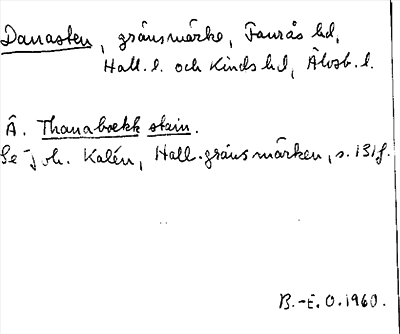 Danasten, gränsmärke, Faurås hd,
Hall. l. och Kinds hd, Älvsb. l.
Å. Thanaboekk stain.
Se Joh. Kalén, Hall. gränsmärken, s. 131f.
B.-E. O. 1960.